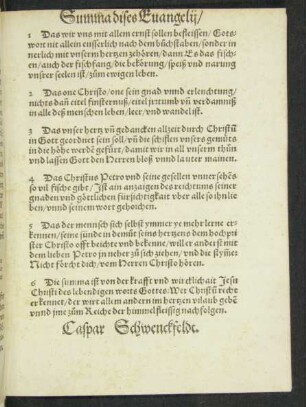 Summa dises Euangelij/
1 Das wir vns mit allem ernst sollen befleissen / Gots
wort nit allein eusserlich nach dem bůchstaben / sonder in
nerlich mit vnserm hertzen zehören / dann Es das fisch-
en / auch der fischfang / die bekörung / speiß vnd narung
vnsrer seelen ist / zům ewigen leben.
2 Das one Christo / one sein gnad vnnd erleuchtung /
nichts dañ eitel finsternuß / eitel irrtumb vñ verdamniß
in alle deß menschen leben / leer / vnd wandel ist.
3 Das vnser hertz vñ gedancken allzeit durch Christũ
in Gott geordnet sein soll / vñ die schifflen vnsers gemüts
in die höhe werdẽ gefürt / damit wir in all vnserm thůn
vnd lassen Gott den Herren bloß vnnd lauter mainen.
4 Das Christus Petro vnd seine gesellen vnuersehẽs
so vil fische gibt / Ist ain anzaigen des reichtums seiner
gnaden vnd götlichen fürsichtigkait vber alle so jhn lie
ben / vnnd seinem wort gehorchen.
5 Das der mensch sich selbst ymmer ye mehr lerne er-
kennen / seine sünde in demůt seins hertzens dem hochpri
ster Christo offt beichte vnd bekenne / will er anderst mit
dem lieben Petro jn neher zů sich ziehen / vnd die stym̃e
Nicht förcht dich / vom Herren Christo hören.
6 Die summa ist von der krafft vnd würcklichait Jesu
Christi des lebendigen worts Gottes: Wer Christũ recht
erkennet / der wirt allem andern im hertzen vrlaub gebẽ
vnnd jme zům Reiche der himmel fleissig nachfolgen.
Caspar Schwenckfeldt.